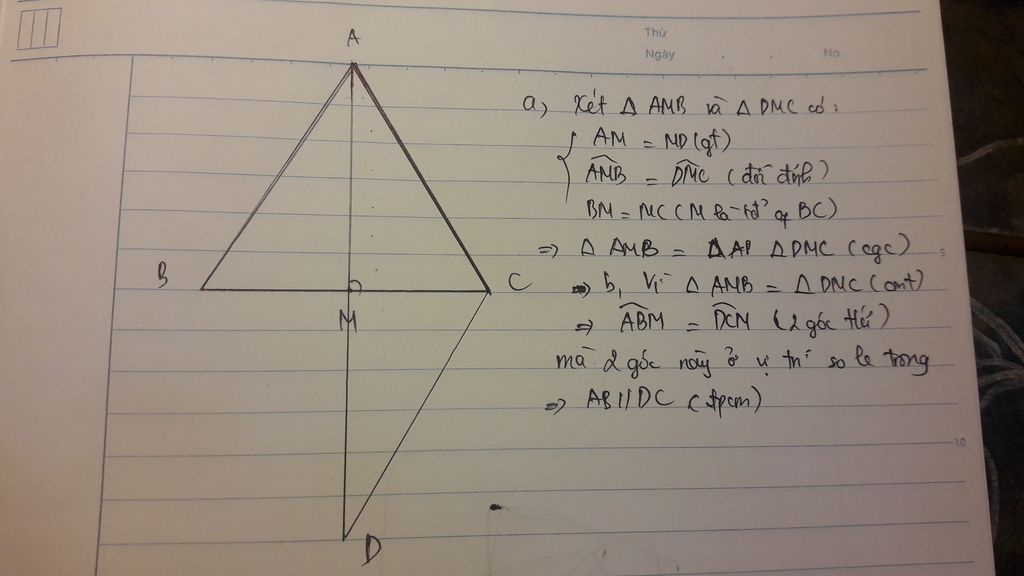 A
B
C
M
D
Thứ
Ngày
No.
5
10
a, Xét Δ AMB và Δ DMC có:
AM = MD (gt)
AMB = DMC (đối đỉnh)
BM = MC (M là tđ² of BC)
=> Δ AMB = Δ DMC (cgc)
=> b, Vì Δ AMB = Δ DMC (cmt)
=> ABM = DCM (2 góc tứ)
mà 2 góc này ở vị trí so le trong
=> AB // DC (đpcm)